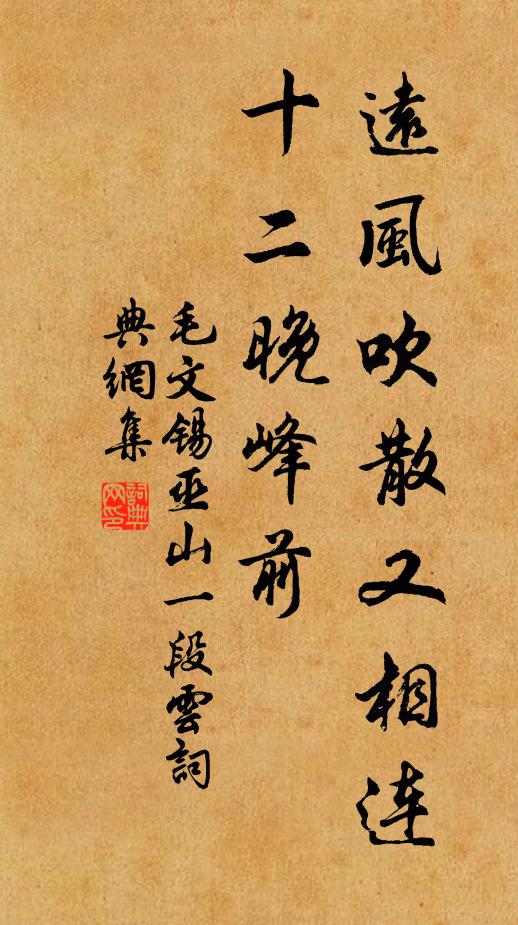 遠風吹散又相連
十二晚峰前
毛文锡巫山一段雲詞
典網集
詞典網印